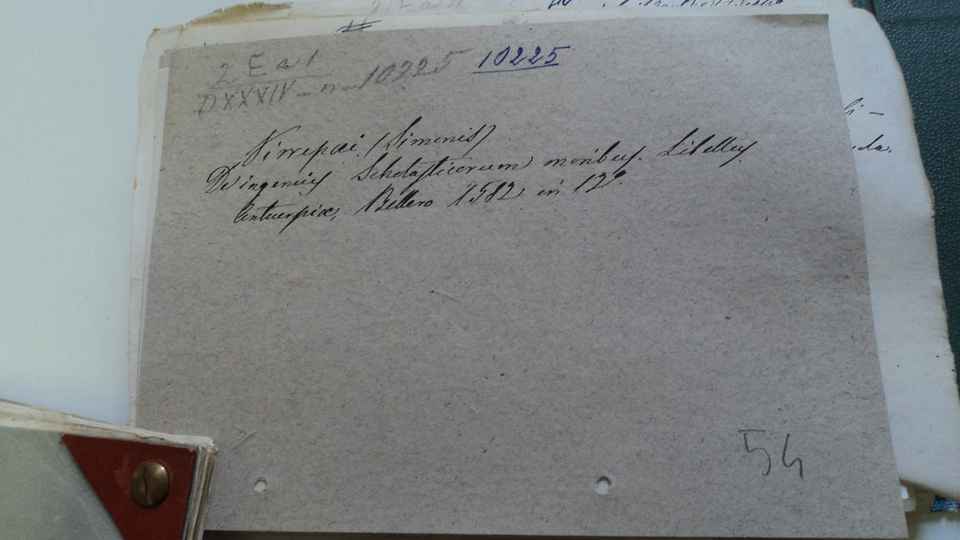 2 E a 1
DXXXIV - n - 10225 10225
Virrepæi (Simonis)
De ingenuis Scholasticorum moribus. Libellus
Antuerpiæ, Bellero 1582 in 12º.
54